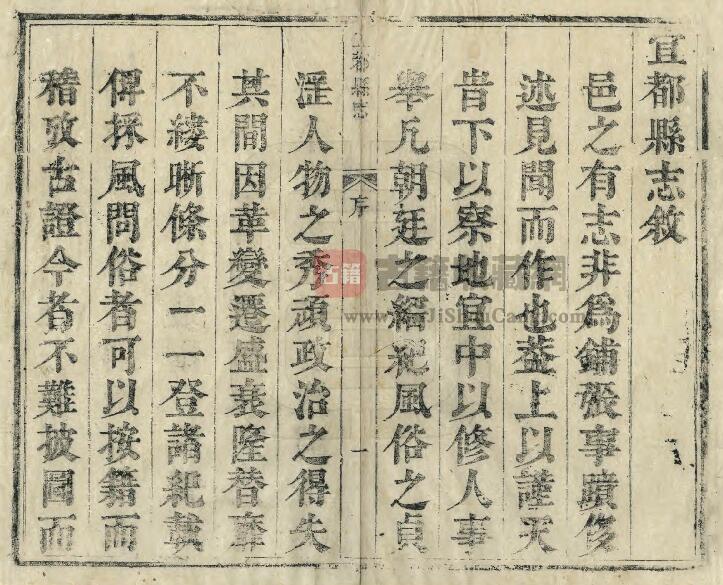 宜都縣志敘
邑之有志非為鋪張事蹟侈
述見聞而作也葢上以謹天
旹下以察地宜中以修人事
舉凡朝廷之綱紀風俗之貞
宜都縣志
序
一
淫人物之秀頑政治之得失
其間因革變遷盛衰隆替靡
不縷晰條分一一登諸紀載
俾採風問俗者可以按籍而
稽攷古證今者不難披圖而
古籍
古籍收藏網
www.JiShouCang.com